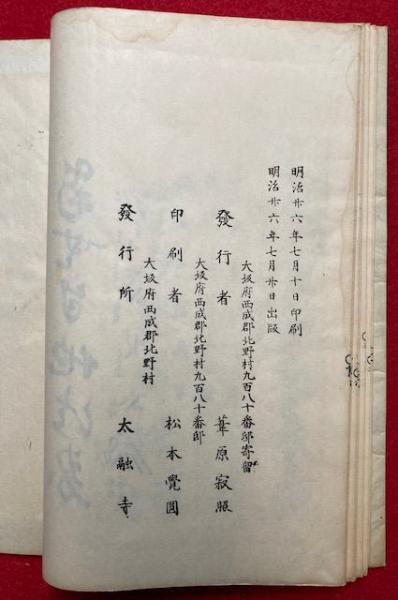 明治廾六年七月十日印刷
明治廾六年七月廾日出版
大坂府西成郡北野村九百八十番邸寄留
發行者 葦原寂照
大坂府西成郡北野村九百八十番邸
印刷者 松本覺圓
大坂府西成郡北野村
發行所 太融寺